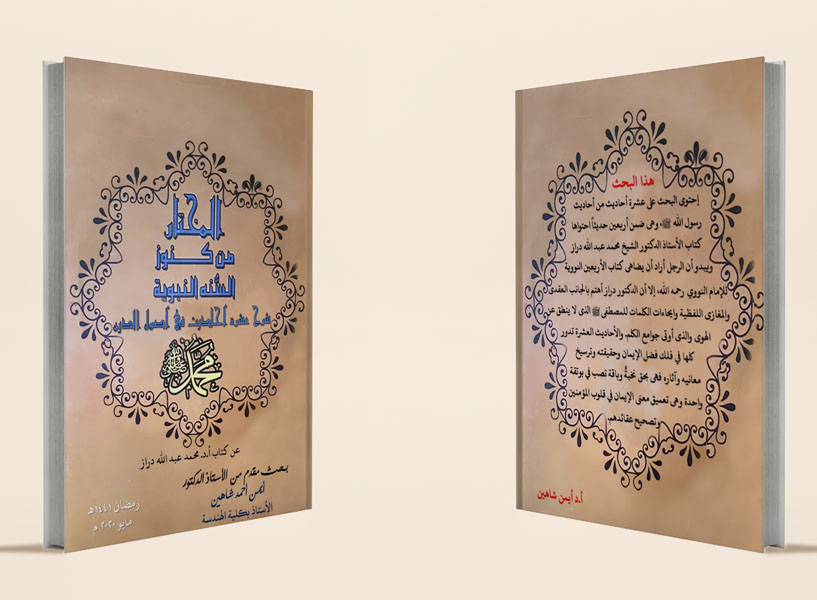 المختار
من كنوز
السنه النبوية
شرح عشره أحاديث في أصول الدين
محمد ﷺ
عن كتاب أ.د. محمد عبد الله دراز
بحث مقدم من الأستاذ الدكتور
أيمن أحمد شاهين
الأستاذ بكلية الهندسة
رمضان ١٤٤١هـ
مايو ٢٠٢٠ م
هذا البحث
إحتوى البحث على عشرة أحاديث من أحاديث
رسول الله ﷺ، وهى ضمن أربعين حديثاً احتواها
كتاب الأستاذ الدكتور الشيخ محمد عبد الله دراز
ويبدو أن الرجل أراد أن يضاهى كتاب الأربعين النووية
للإمام النووي رحمه الله، إلا أن الدكتور دراز أهتم بالجانب العقدى
والمغازى اللفظية وإيحاءات الكلمات للمصطفى ﷺ الذى لا ينطق عن
الهوى والذى أوتى جوامع الكلم. والأحاديث العشرة تدور
كلها فى فلك فضل الإيمان وحقيقته وترسيخ
معانيه وآثاره فهى بحق نخبةٌ وباقة تصب فى بوتقة
واحدة وهى تعميق معنى الإيمان فى قلوب المؤمنين
وتصحيح عقائدهم.
أ.د أيمن شاهين